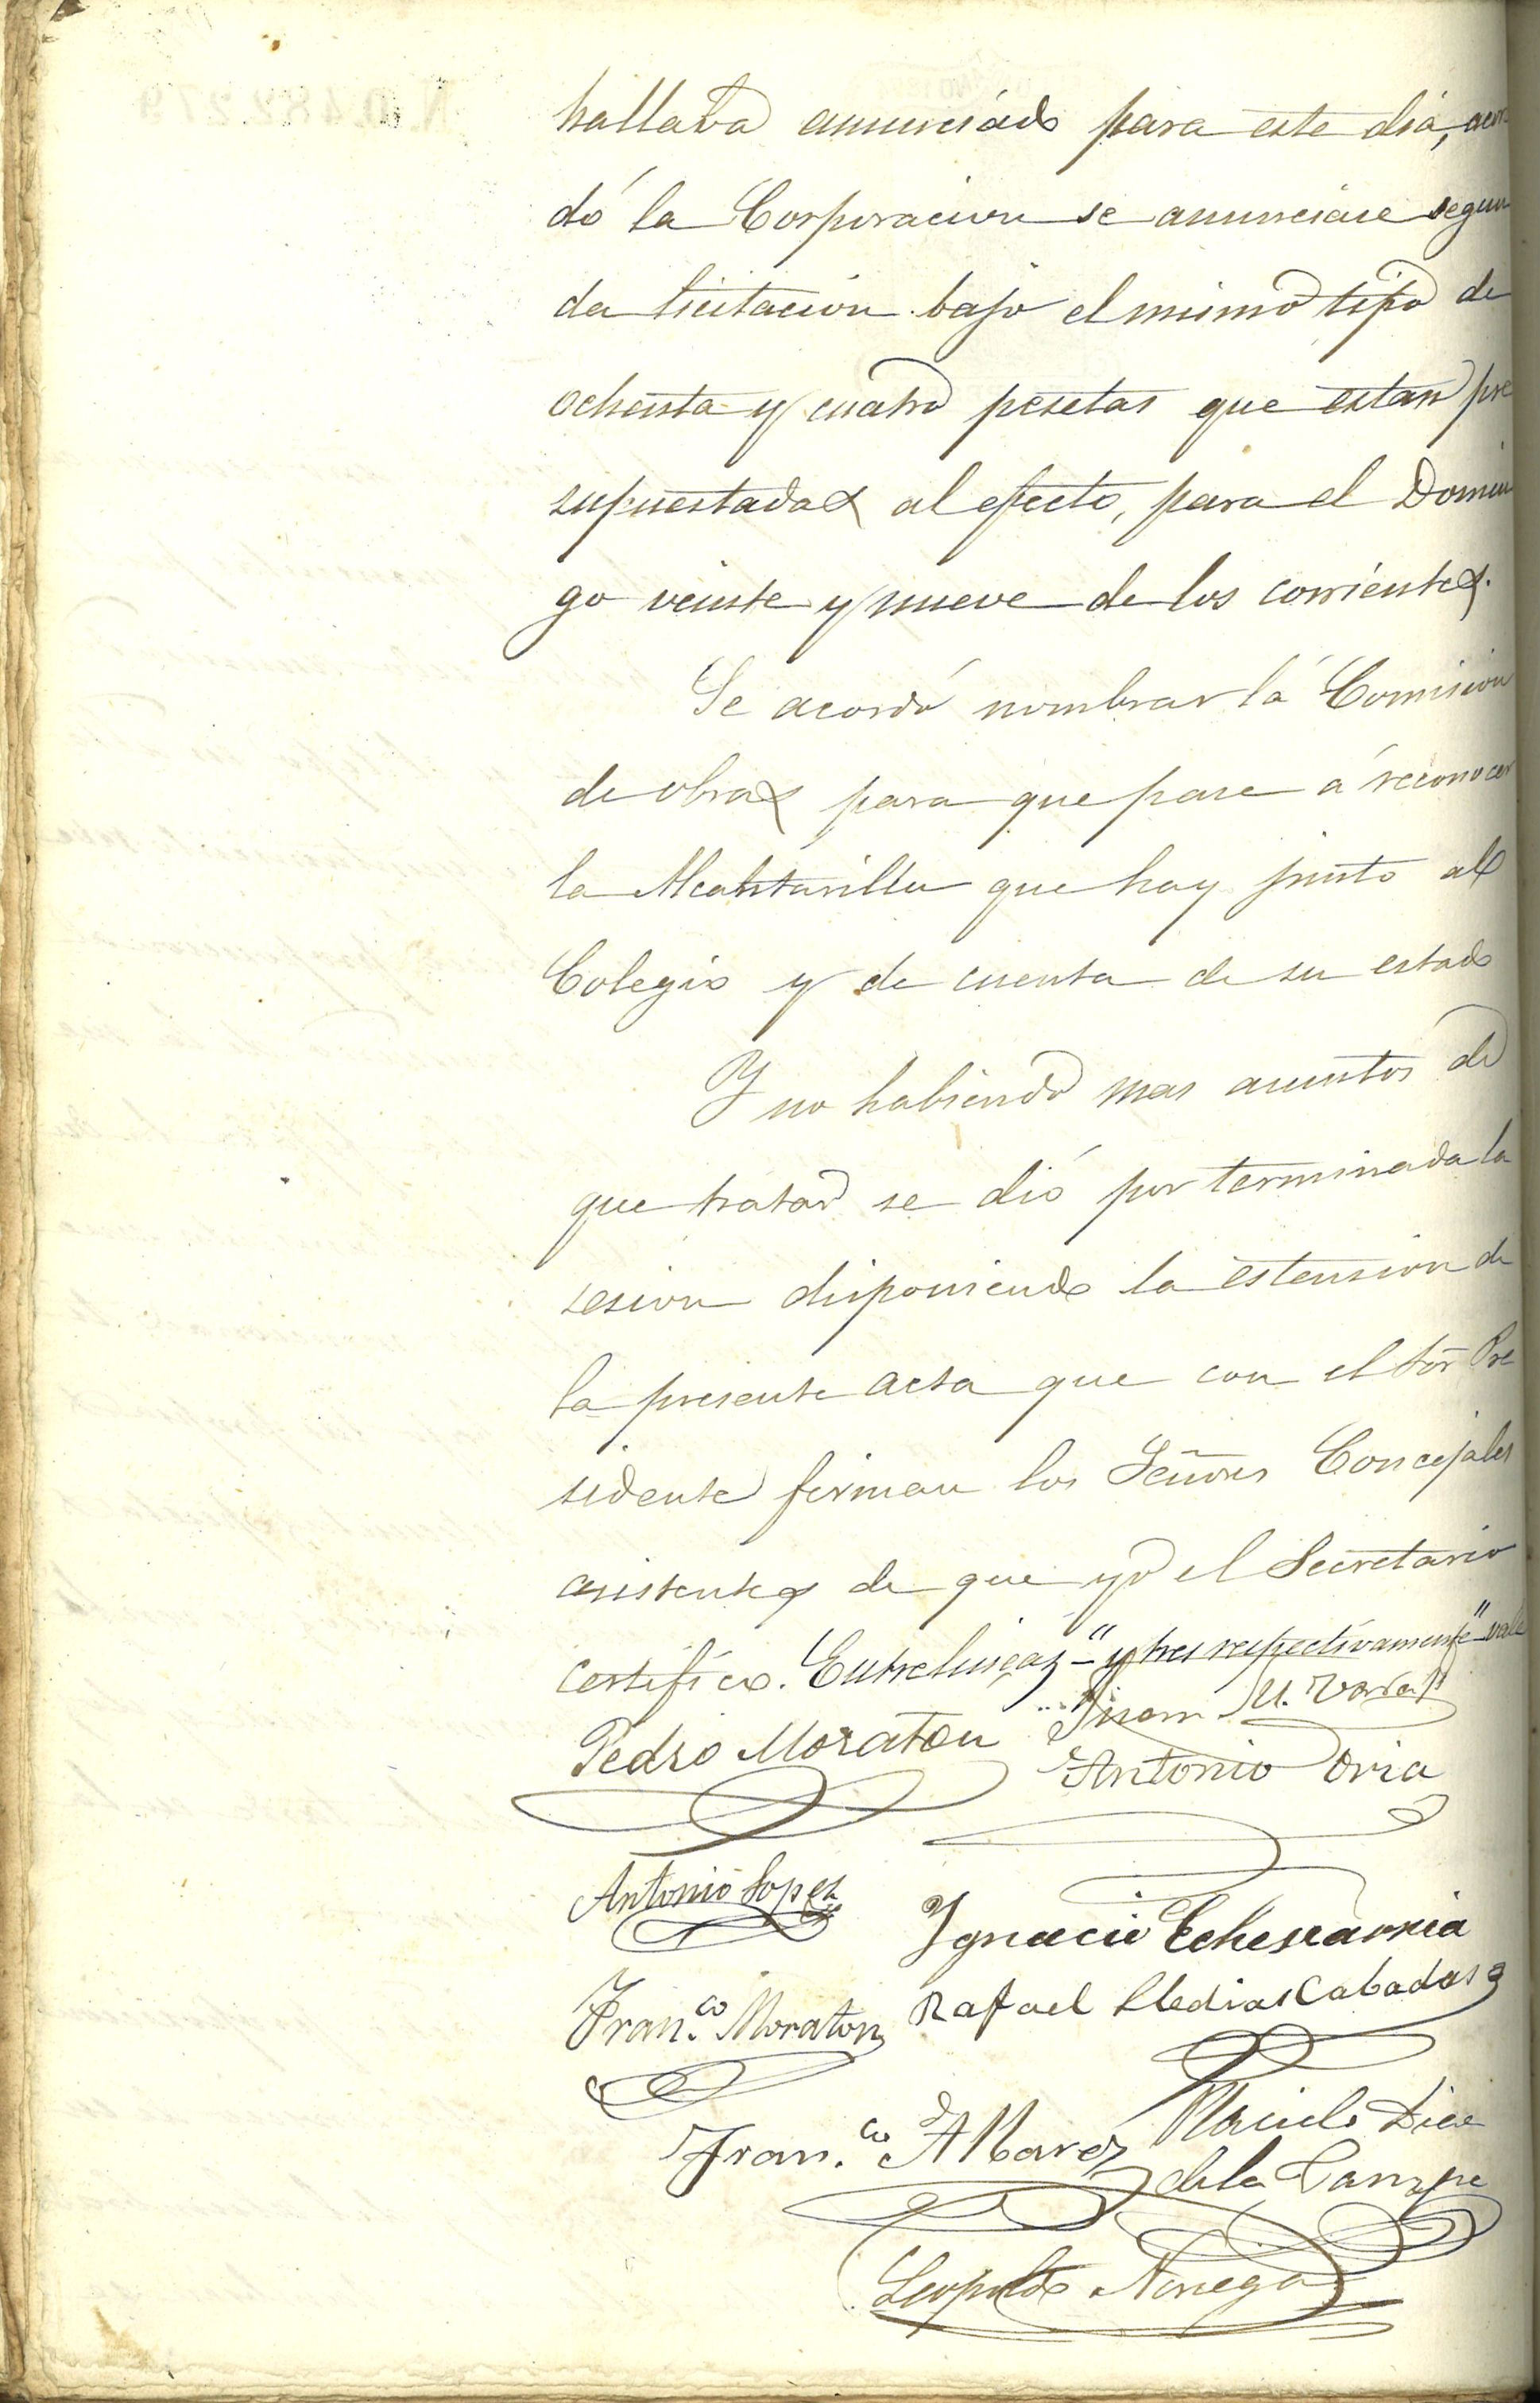 hallaba anunciado para este dia, acor
dó la Corporacion se anunciase segun
da licitación bajo el mismo tipo de
ochenta y cuatro pesetas que estan pre
supuestadas al efecto, para el Domin
go veinte y nueve de los corrientes.
Se acordó nombrar la Comision
de obras para que pase á reconocer
la Alcantarilla que hay junto al
Colegio y de cuenta de su estado
Y no habiendo mas asuntos de
que tratar se dió por terminada la
sesion disponiendo la estension de
la presente acta que con el Sor Pre
sidente firman los Señores Concejales
asistentes de que yo el Secretario
certifico. Entrelineas "y tres respectivamente" vale
Pedro Moraton Juan M.
Antonio Oria
Antonio Lopez
Ignacio Echevarria
Fran.co Moraton Rafael Lledias Cabadas
Fran.co Albarez Placido Diez
de la
Leopoldo Noriega
N. 0.482.279